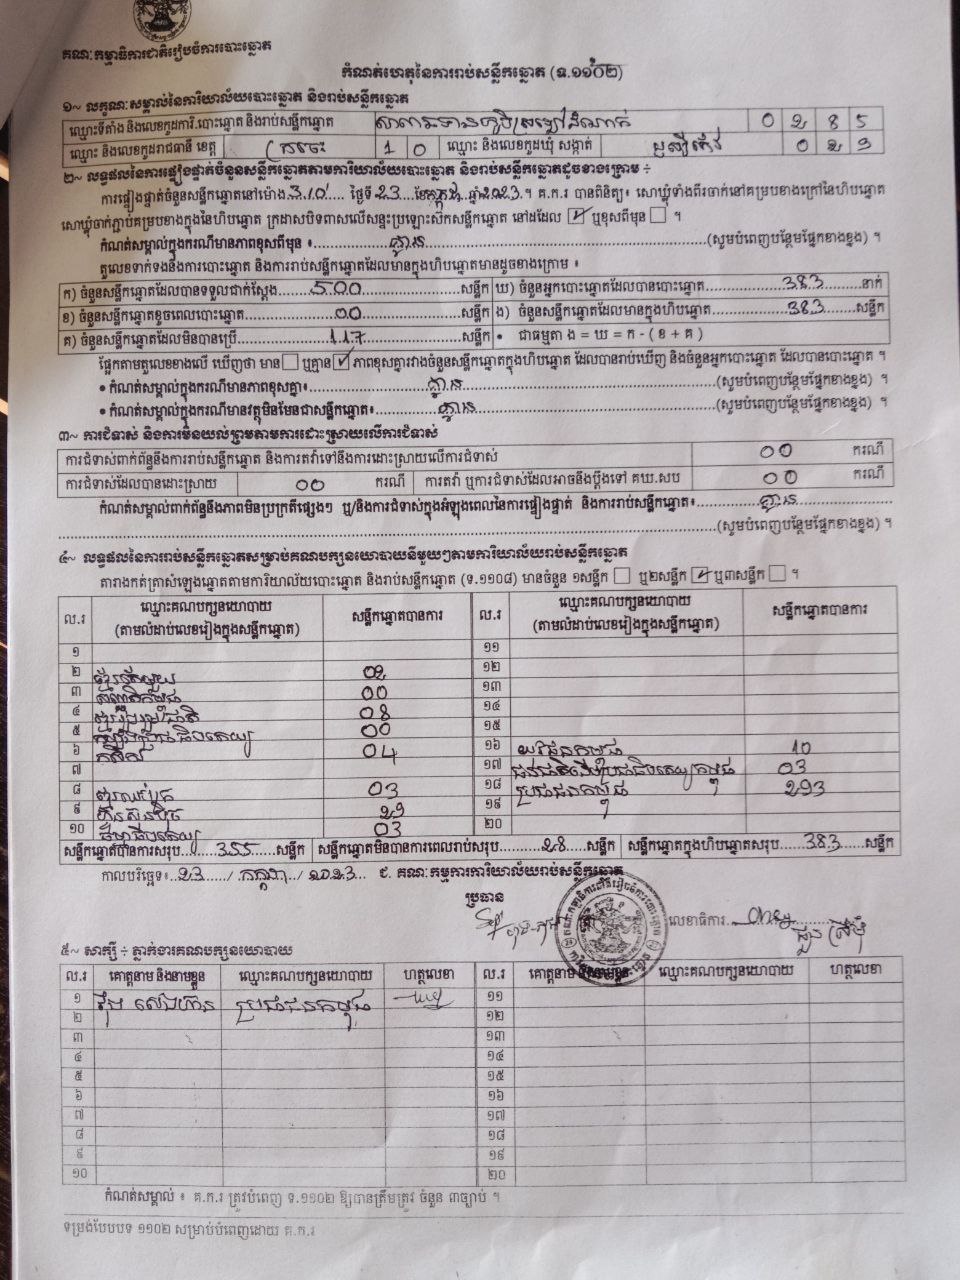 គណៈកម្មាធិការជាតិរៀបចំការបោះឆ្នោត
កំណត់ហេតុនៃការរាប់សន្លឹកឆ្នោត (ទ.១១០២)
១~ លក្ខណៈសម្គាល់នៃការិយាល័យបោះឆ្នោត និងរាប់សន្លឹកឆ្នោត
ឈ្មោះទីតាំង និងលេខកូដការិ.បោះឆ្នោត និងរាប់សន្លឹកឆ្នោត 0 2 8 5
ឈ្មោះ និងលេខកូដរាជធានី ខេត្ត ក្រចេះ 1 0 ឈ្មោះ និងលេខកូដឃុំ សង្កាត់ 0 2 9
២~ លទ្ធផលនៃការផ្ទៀងផ្ទាត់ចំនួនសន្លឹកឆ្នោតតាមការិយាល័យបោះឆ្នោត និងរាប់សន្លឹកឆ្នោតដូចខាងក្រោម ÷
ការផ្ទៀងផ្ទាត់ចំនួនសន្លឹកឆ្នោតនៅម៉ោង 3:10 ថ្ងៃទី 23 ខែ កក្កដា ឆ្នាំ 2023 ។ គ.ក.រ បានពិនិត្យ៖ សោឃ្លុំទាំងពីរចាក់នៅគម្របខាងក្រៅនៃហិបឆ្នោត
សោឃ្លុំចាក់ភ្ជាប់គម្របខាងក្នុងនៃហិបឆ្នោត ក្រដាសបិទពាសលើសន្ទះប្រឡោះស៊កសន្លឹកឆ្នោត នៅដដែល ☑ ឬខុសពីមុន ☐ ។
កំណត់សម្គាល់ក្នុងករណីមានភាពខុសពីមុន ៖ គ្មាន (សូមបំពេញបន្ថែមផ្នែកខាងខ្នង) ។
តួលេខទាក់ទងនឹងការបោះឆ្នោត និងការរាប់សន្លឹកឆ្នោតដែលមានក្នុងហិបឆ្នោតមានដូចខាងក្រោម ៖
ក) ចំនួនសន្លឹកឆ្នោតដែលបានទទួលជាក់ស្តែង 500 សន្លឹក ឃ) ចំនួនអ្នកបោះឆ្នោតដែលបានបោះឆ្នោត 383 នាក់
ខ) ចំនួនសន្លឹកឆ្នោតខូចពេលបោះឆ្នោត 00 សន្លឹក ង) ចំនួនសន្លឹកឆ្នោតដែលមានក្នុងហិបឆ្នោត 383 សន្លឹក
គ) ចំនួនសន្លឹកឆ្នោតដែលមិនបានប្រើ 117 សន្លឹក • ជាធម្មតា ង = ឃ = ក - ( ខ + គ )
ផ្អែកតាមតួលេខខាងលើ ឃើញថា មាន ☐ ឬគ្មាន ☑ ភាពខុសគ្នារវាងចំនួនសន្លឹកឆ្នោតក្នុងហិបឆ្នោត ដែលបានរាប់ឃើញ និងចំនួនអ្នកបោះឆ្នោត ដែលបានបោះឆ្នោត ។
• កំណត់សម្គាល់ក្នុងករណីមានភាពខុសគ្នា៖ គ្មាន (សូមបំពេញបន្ថែមផ្នែកខាងខ្នង) ។
• កំណត់សម្គាល់ក្នុងករណីមានវត្ថុមិនមែនជាសន្លឹកឆ្នោត៖ គ្មាន (សូមបំពេញបន្ថែមផ្នែកខាងខ្នង) ។
៣~ ការជំទាស់ និងការមិនយល់ព្រមតាមការដោះស្រាយលើការជំទាស់
ការជំទាស់ពាក់ព័ន្ធនឹងការរាប់សន្លឹកឆ្នោត និងការតវ៉ាទៅនឹងការដោះស្រាយលើការជំទាស់ 00 ករណី
ការជំទាស់ដែលបានដោះស្រាយ 00 ករណី ការតវ៉ា ឬការជំទាស់ដែលអាចនឹងប្តឹងទៅ គឃ.សប 00 ករណី
កំណត់សម្គាល់ពាក់ព័ន្ធនឹងភាពមិនប្រក្រតីផ្សេងៗ ឬ/និងការជំទាស់ក្នុងអំឡុងពេលនៃការផ្ទៀងផ្ទាត់ និងការរាប់សន្លឹកឆ្នោត៖ គ្មាន
(សូមបំពេញបន្ថែមផ្នែកខាងខ្នង) ។
៤~ លទ្ធផលនៃការរាប់សន្លឹកឆ្នោតសម្រាប់គណបក្សនយោបាយនីមួយៗតាមការិយាល័យរាប់សន្លឹកឆ្នោត
តារាងកត់ត្រាសំឡេងឆ្នោតតាមការិយាល័យបោះឆ្នោត និងរាប់សន្លឹកឆ្នោត (ទ.១១០៨) មានចំនួន ១សន្លឹក ☐ ឬ២សន្លឹក ☑ ឬ៣សន្លឹក ☐ ។
ល.រ ឈ្មោះគណបក្សនយោបាយ (តាមលំដាប់លេខរៀងក្នុងសន្លឹកឆ្នោត) សន្លឹកឆ្នោតបានការ ល.រ ឈ្មោះគណបក្សនយោបាយ (តាមលំដាប់លេខរៀងក្នុងសន្លឹកឆ្នោត) សន្លឹកឆ្នោតបានការ
១ ១១
២ ខ្មែរតែមួយ 02 ១២
៣ 00 ១៣
៤ 08 ១៤
៥ 00 ១៥
៦ កសិករ 04 ១៦ យុវជនកម្ពុជា 10
៧ ១៧ ជនជាតិដើមប្រជាធិបតេយ្យកម្ពុជា 03
៨ 03 ១៨ ប្រជាជនកម្ពុជា 293
៩ ហ៊្វុនស៊ិនប៉ិច 29 ១៩
១០ ធម្មាធិបតេយ្យ 03 ២០
សន្លឹកឆ្នោតបានការសរុប 355 សន្លឹក សន្លឹកឆ្នោតមិនបានការពេលរាប់សរុប 28 សន្លឹក សន្លឹកឆ្នោតក្នុងហិបឆ្នោតសរុប 383 សន្លឹក
កាលបរិច្ឆេទ៖ 23 / កក្កដា / 2023 ជ. គណៈកម្មការការិយាល័យរាប់សន្លឹកឆ្នោត
ប្រធាន
លេខាធិការ
៥~ សាក្សី ÷ ភ្នាក់ងារគណបក្សនយោបាយ
ល.រ គោត្តនាម និងនាមខ្លួន ឈ្មោះគណបក្សនយោបាយ ហត្ថលេខា ល.រ គោត្តនាម និងនាមខ្លួន ឈ្មោះគណបក្សនយោបាយ ហត្ថលេខា
១ ប្រជាជនកម្ពុជា ១១
២ ១២
៣ ១៣
៤ ១៤
៥ ១៥
៦ ១៦
៧ ១៧
៨ ១៨
៩ ១៩
១០ ២០
កំណត់សម្គាល់ ៖ គ.ក.រ ត្រូវបំពេញ ទ.១១០២ ឱ្យបានត្រឹមត្រូវ ចំនួន ៣ច្បាប់ ។
ទម្រង់បែបបទ ១១០២ សម្រាប់បំពេញដោយ គ.ក.រ